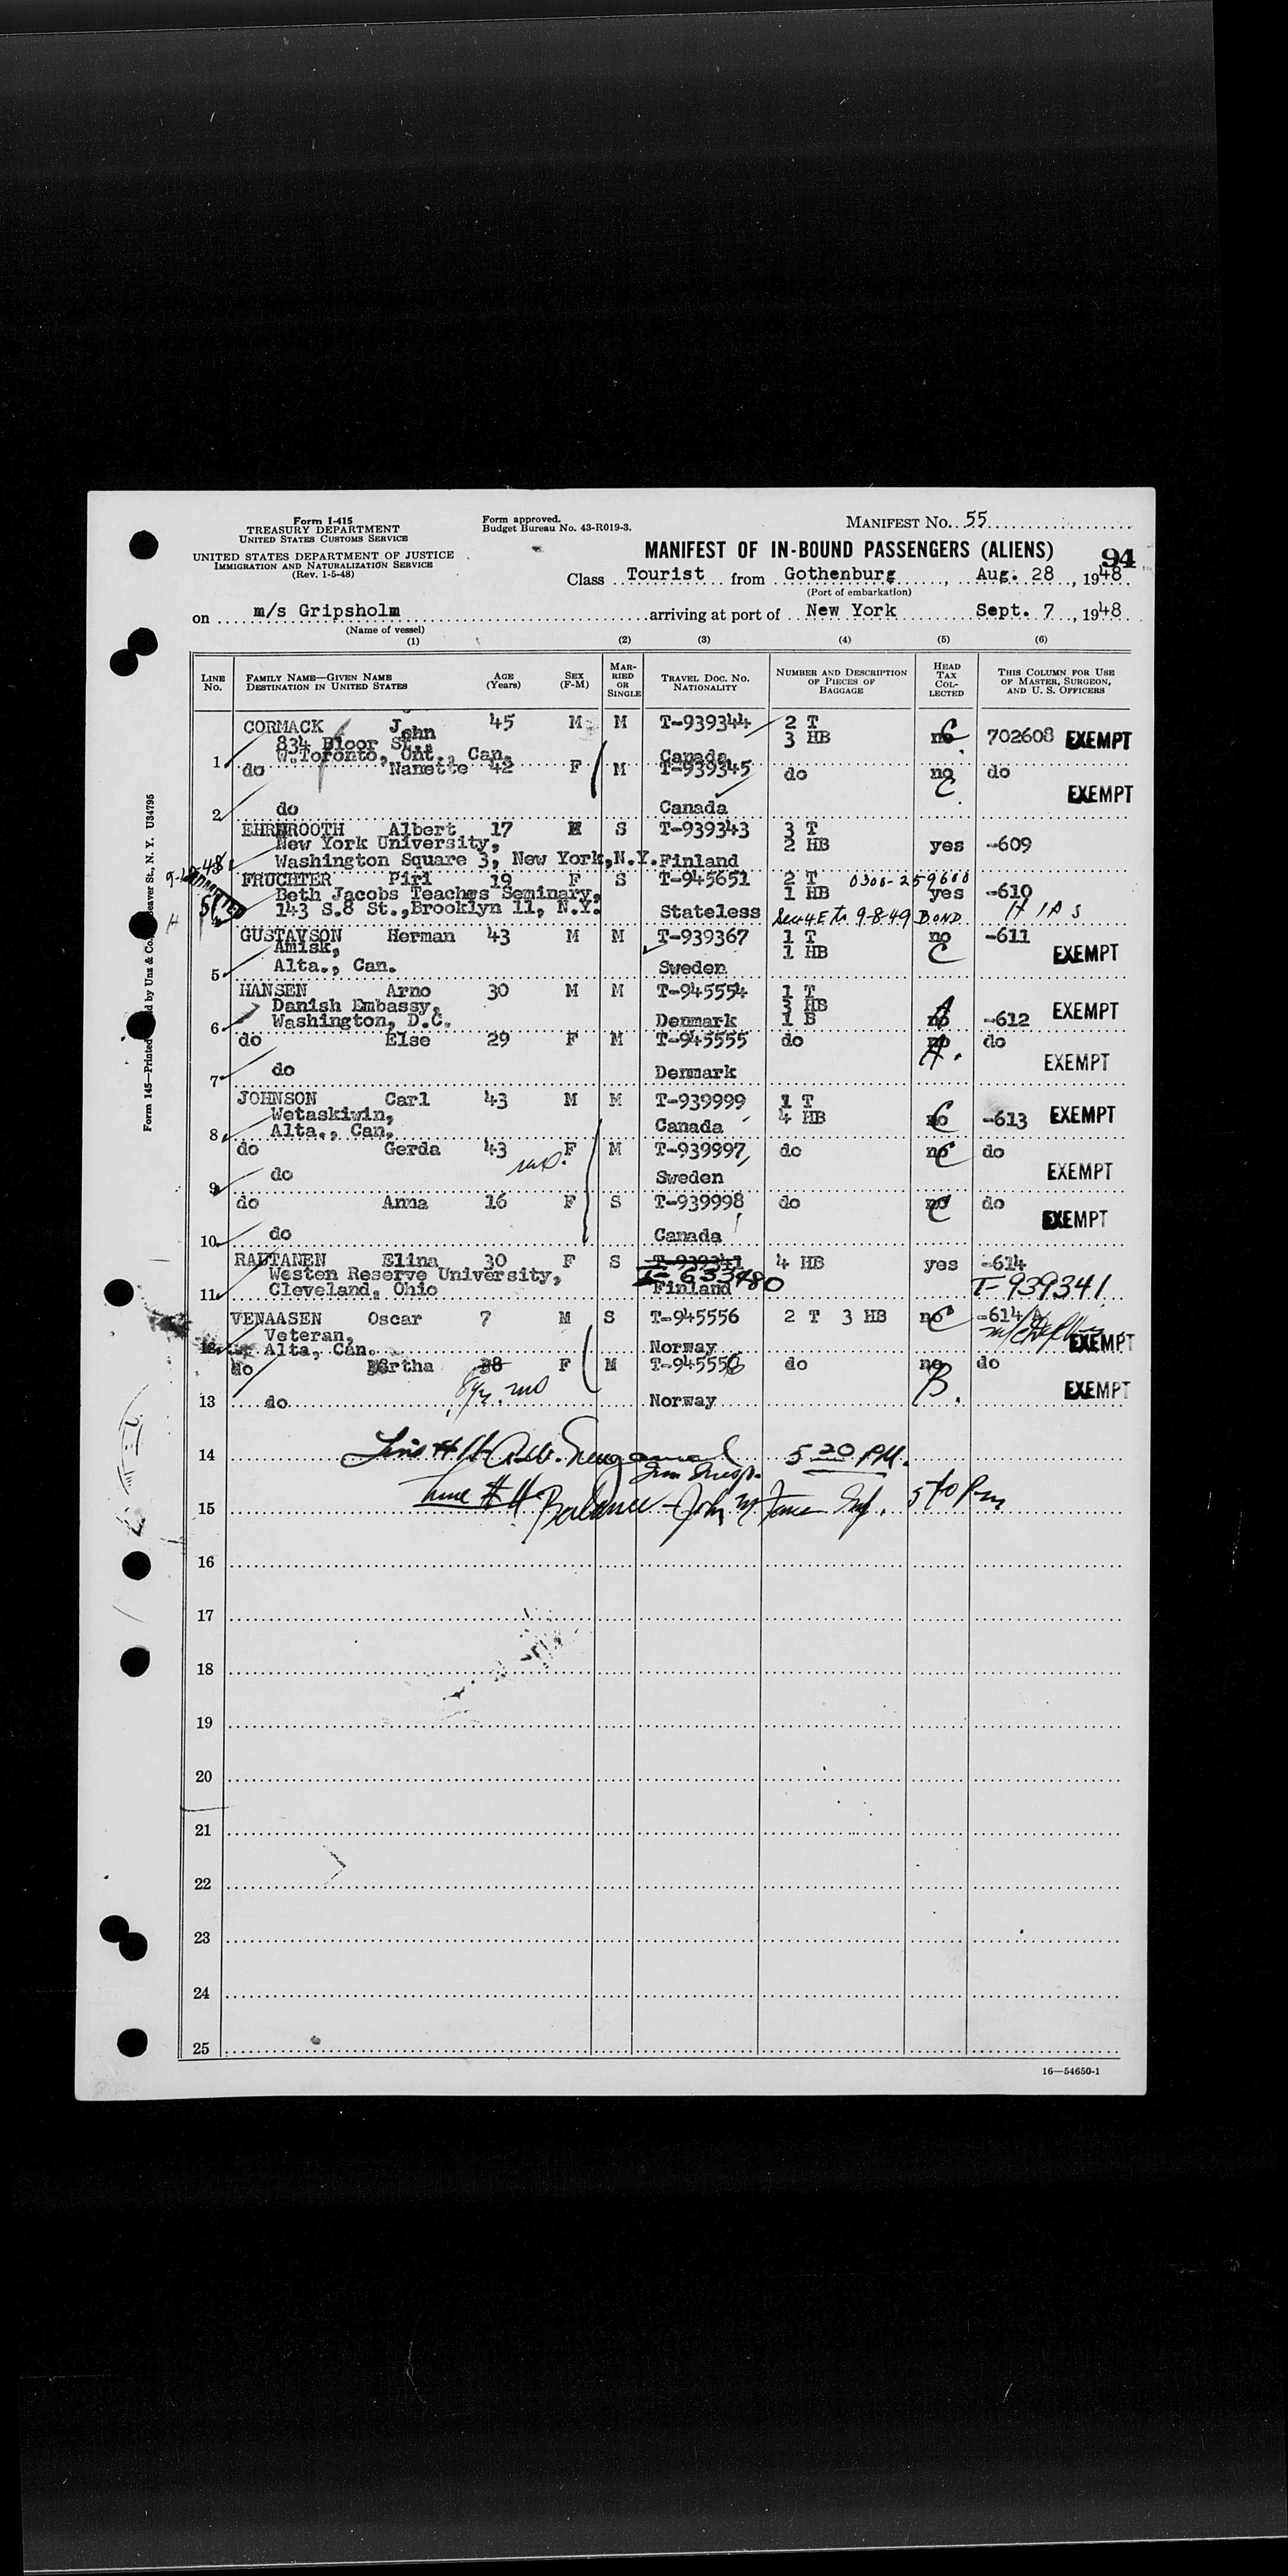 Form I-415
TREASURY DEPARTMENT
UNITED STATES CUSTOMS SERVICE
UNITED STATES DEPARTMENT OF JUSTICE
IMMIGRATION AND NATURALIZATION SERVICE
(Rev. 1-5-48)
Form approved.
Budget Bureau No. 43-R019-3.
MANIFEST NO. 55
MANIFEST OF IN-BOUND PASSENGERS (ALIENS) 94
Class Tourist from Gothenburg, Aug. 28, 1948
(Port of embarkation)
on m/s Gripsholm arriving at port of New York Sept. 7, 1948
(Name of vessel)
(1) (2) (3) (4) (5) (6)
LINE NO. FAMILY NAME—GIVEN NAME DESTINATION IN UNITED STATES AGE (Years) SEX (F-M) MARRIED OR SINGLE TRAVEL DOC. NO. NATIONALITY NUMBER AND DESCRIPTION OF PIECES OF BAGGAGE HEAD TAX COLLECTED THIS COLUMN FOR USE OF MASTER, SURGEON, AND U. S. OFFICERS
CORMACK John 45 M M T-939344 2 T
834 Bloor St., 3 HB no C 702608 EXEMPT
1 W.Toronto, Ont., Can. Canada
do Nanette 42 F M T-939345 do no C do
EXEMPT
2 do Canada
EHRNROOTH Albert 17 M S T-939343 3 T
New York University, 2 HB yes -609
Washington Square 3, New York, N.Y. Finland
FRUCHTER Piri 19 F S T-945651 2 T 0300-259600
Beth Jacobs Teaches Seminary, 1 HB yes -610
143 S.8 St., Brooklyn 11, N.Y. Stateless Sec 4E to 9-8-49 BOND HIAS
ADMITTED
GUSTAVSON Herman 43 M M T-939367 1 T no C -611
Amisk, 1 HB EXEMPT
5 Alta., Can. Sweden
HANSEN Arno 30 M M T-945554 1 T
Danish Embassy, 3 HB EXEMPT
6 Washington, D.C. Denmark 1 B no A -612
do Else 29 F M T-945555 do no A. do
EXEMPT
7 do Denmark
JOHNSON Carl 43 M M T-939999 1 T
Wetaskiwin, 4 HB no C -613 EXEMPT
8 Alta., Can. Canada
do Gerda 43 F M T-939997 do no C do
EXEMPT
9 do Sweden
do Anna 16 F S T-939998 do no C do
EXEMPT
10 do Canada
RAUTANEN Elina 30 F S T-939341 4 HB yes -614
Westen Reserve University, T-633480
11 Cleveland, Ohio Finland T-939341
VENAASEN Oscar 7 M S T-945556 2 T 3 HB no C -614
Veteran, EXEMPT
12 Alta, Can. Norway
do rtha 38 F M T-945556 do no B. do
EXEMPT
13 do Norway
14 Line # 11 5 20 PM.
Imm Insp.
15 Line # 4 Balance - John 5 40 Pm
16
17
18
19
20
21
22
23
24
25
16—54650-1